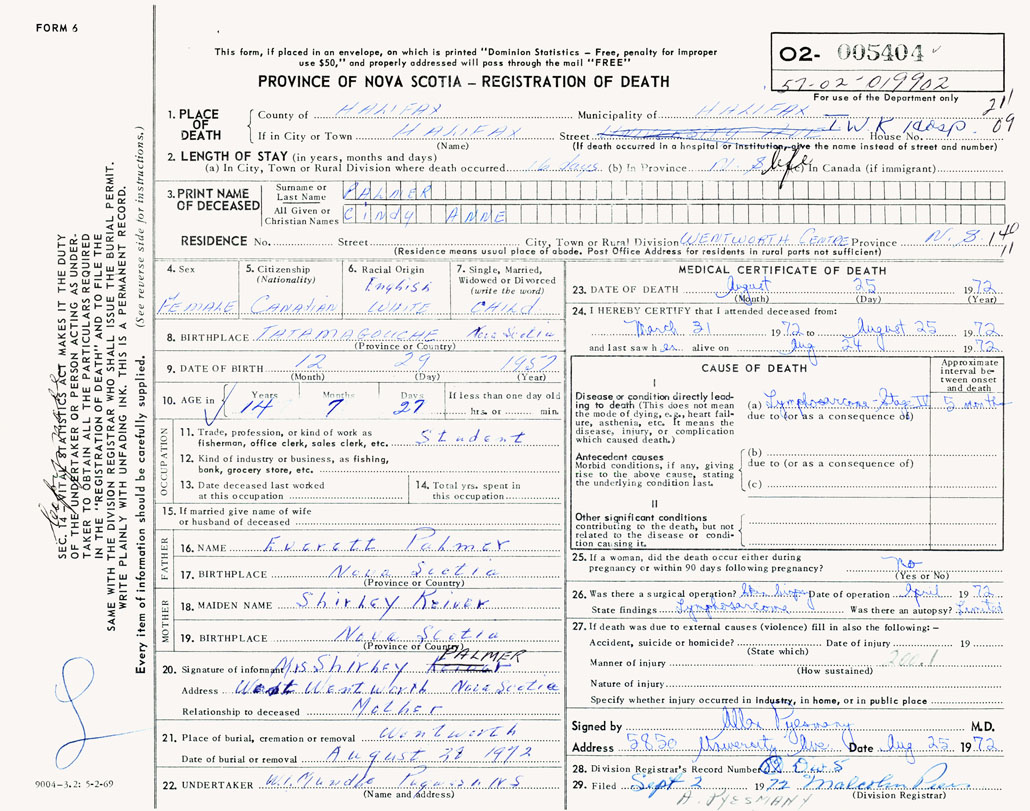 FORM 6
This form, if placed in an envelope, on which is printed "Dominion Statistics – Free, penalty for improper
use $50," and properly addressed will pass through the mail "FREE"
PROVINCE OF NOVA SCOTIA – REGISTRATION OF DEATH
02- 005404
57-02-019902
For use of the Department only
211
09
1. PLACE OF DEATH
County of HALIFAX Municipality of HALIFAX
If in City or Town HALIFAX Street I W K Hosp. House No.
(Name) (If death occurred in a hospital or institution, give the name instead of street and number)
2. LENGTH OF STAY (in years, months and days)
(a) In City, Town or Rural Division where death occurred 16 days (b) In Province N. S. life (c) In Canada (if immigrant)
3. PRINT NAME OF DECEASED
Surname or Last Name PALMER
All Given or Christian Names Cindy ANNE
RESIDENCE No. Street City, Town or Rural Division WENTWORTH CENTRE Province N. S. 140
11
(Residence means usual place of abode. Post Office Address for residents in rural parts not sufficient)
4. Sex
FEMALE
5. Citizenship
(Nationality)
CANADIAN
6. Racial Origin
English
WHITE
7. Single, Married,
Widowed or Divorced
(write the word)
CHILD
8. BIRTHPLACE TATAMAGOUCHE Nova Scotia
(Province or Country)
9. DATE OF BIRTH 12 29 1957
(Month) (Day) (Year)
10. AGE in Years Months Days If less than one day old
14 7 27 hrs. or min.
OCCUPATION
11. Trade, profession, or kind of work as
fisherman, office clerk, sales clerk, etc. Student
12. Kind of industry or business, as fishing,
bank, grocery store, etc.
13. Date deceased last worked
at this occupation
14. Total yrs. spent in
this occupation
15. If married give name of wife
or husband of deceased
FATHER
16. NAME Everett Palmer
17. BIRTHPLACE Nova Scotia
(Province or Country)
MOTHER
18. MAIDEN NAME Shirley
19. BIRTHPLACE Nova Scotia
(Province or Country)
PALMER
20. Signature of informant Mrs Shirley
Address West Wentworth Nova Scotia
Relationship to deceased Mother
21. Place of burial, cremation or removal Wentworth
Date of burial or removal August 28 1972
22. UNDERTAKER N S
(Name and address)
MEDICAL CERTIFICATE OF DEATH
23. DATE OF DEATH August 25 1972
(Month) (Day) (Year)
24. I HEREBY CERTIFY that I attended deceased from:
March 21 1972 to August 25 1972
and last saw her alive on Aug 24 1972
CAUSE OF DEATH
Approximate
interval be-
tween onset
and death
I
Disease or condition directly lead-
ing to death (This does not mean
the mode of dying, e.g., heart fail-
ure, asthenia, etc. It means the
disease, injury, or complication
which caused death.)
(a) Lymphosarcoma – Stage IV 5 month
due to (or as a consequence of)
Antecedent causes
Morbid conditions, if any, giving
rise to the above cause, stating
the underlying condition last.
(b)
due to (or as a consequence of)
(c)
II
Other significant conditions
contributing to the death, but not
related to the disease or condi-
tion causing it.
25. If a woman, did the death occur either during
pregnancy or within 90 days following pregnancy? no
(Yes or No)
26. Was there a surgical operation? Date of operation April 1972
State findings Lymphosarcoma Was there an autopsy? Limited
27. If death was due to external causes (violence) fill in also the following:–
Accident, suicide or homicide? Date of injury 19
(State which)
200.1
Manner of injury
(How sustained)
Nature of injury
Specify whether injury occurred in industry, in home, or in public place
Signed by Allan Pyesmany M.D.
Address 5850 University Ave Date Aug 25 1972
28. Division Registrar's Record Number
29. Filed Sept 2 1972 Malcolm
(Division Registrar)
A. PYESMANY
SEC. 14 – VITAL STATISTICS ACT MAKES IT THE DUTY
OF THE UNDERTAKER OR PERSON ACTING AS UNDER-
TAKER TO OBTAIN ALL THE PARTICULARS REQUIRED
IN THE "REGISTRATION OF DEATH" AND TO FILE THE
SAME WITH THE DIVISION REGISTRAR WHO SHALL ISSUE THE BURIAL PERMIT.
WRITE PLAINLY WITH UNFADING INK. THIS IS A PERMANENT RECORD.
Every item of information should be carefully supplied. (See reverse side for instructions.)
9004–3.2: 5-2-69